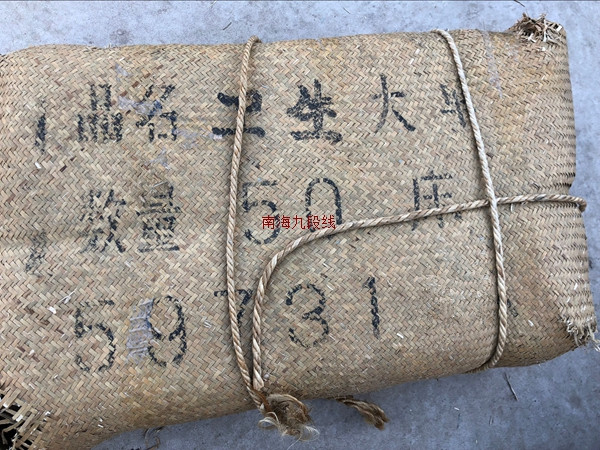 品名 卫生大
数量 50 床
南海九段线
59731